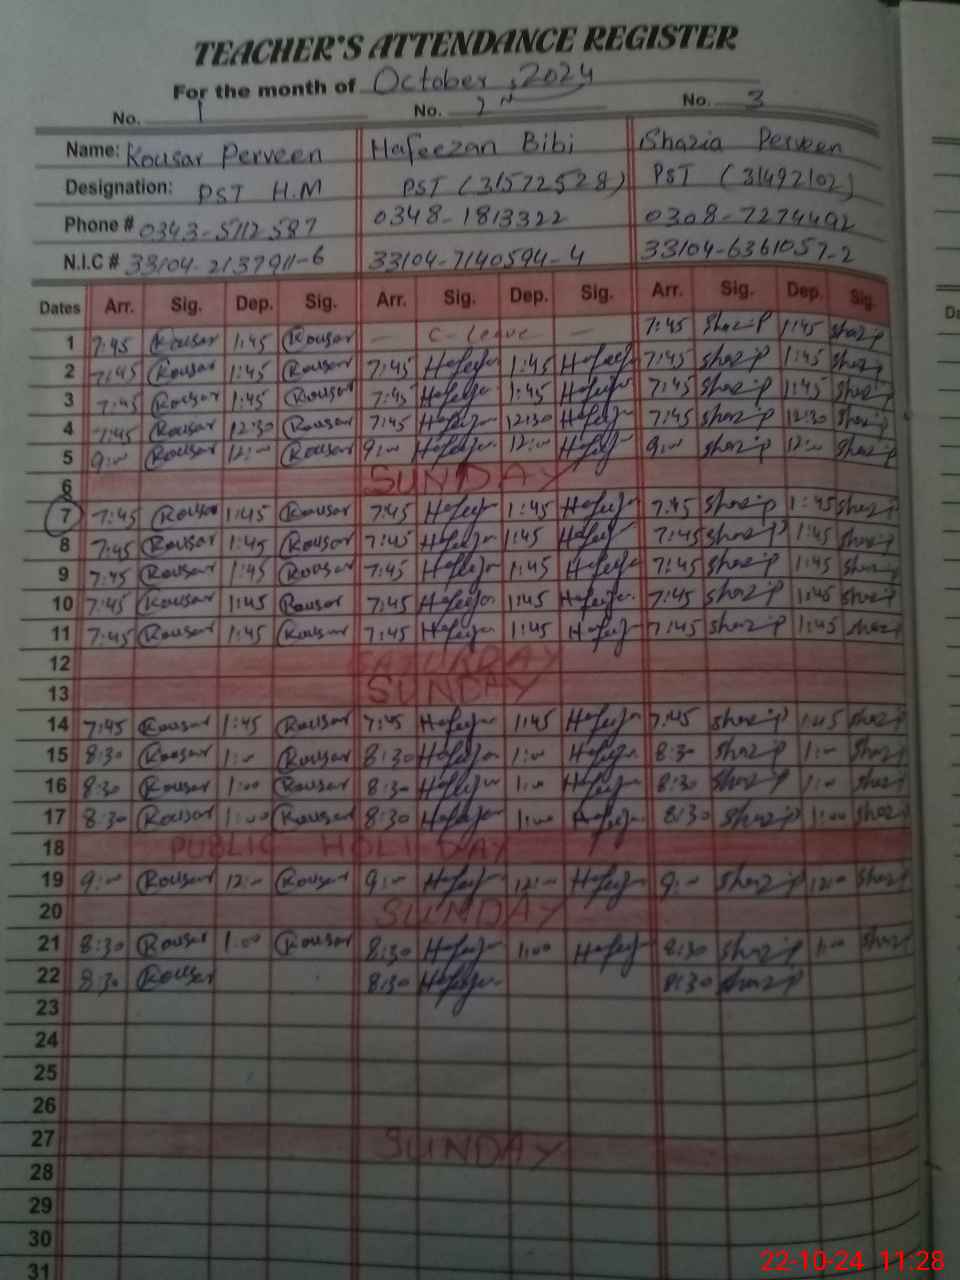 TEACHER'S ATTENDANCE REGISTER
For the month of October, 2024
No. 1 No. 2nd No. 3
Name: Kousar Perveen Hafeezan Bibi Shazia Perveen
Designation: PST H.M PST (31572528) PST (31492102)
Phone # 0343-5712587 0348-1813322 0308-7274492
N.I.C # 33104-2137911-6 33104-7140594-4 33104-6361057-2
Dates Arr. Sig. Dep. Sig. Arr. Sig. Dep. Sig. Arr. Sig. Dep. Sig.
1 7:45 Kousar 1:45 Kousar — C-Leave — 7:45 Shazia 1:45 Shazia
2 7:45 Kousar 1:45 Kousar 7:45 Hafeezan 1:45 Hafeezan 7:45 Shazia 1:45 Shazia
3 7:45 Kousar 1:45 Kousar 7:45 Hafeezan 1:45 Hafeezan 7:45 Shazia 1:45 Shazia
4 7:45 Kousar 12:30 Kousar 7:45 Hafeezan 12:30 Hafeezan 7:45 Shazia 12:30 Shazia
5 9:00 Kousar 12:00 Kousar 9:00 Hafeezan 12:00 Hafeezan 9:00 Shazia 12:00 Shazia
6 SUNDAY
7 7:45 Kousar 1:45 Kousar 7:45 Hafeezan 1:45 Hafeezan 7:45 Shazia 1:45 Shazia
8 7:45 Kousar 1:45 Kousar 7:45 Hafeezan 1:45 Hafeezan 7:45 Shazia 1:45 Shazia
9 7:45 Kousar 1:45 Kousar 7:45 Hafeezan 1:45 Hafeezan 7:45 Shazia 1:45 Shazia
10 7:45 Kousar 1:45 Kousar 7:45 Hafeezan 1:45 Hafeezan 7:45 Shazia 1:45 Shazia
11 7:45 Kousar 1:45 Kousar 7:45 Hafeezan 1:45 Hafeezan 7:45 Shazia 1:45 Shazia
12 SATURDAY
13 SUNDAY
14 7:45 Kousar 1:45 Kousar 7:45 Hafeezan 1:45 Hafeezan 7:45 Shazia 1:45 Shazia
15 8:30 Kousar 1:00 Kousar 8:30 Hafeezan 1:00 Hafeezan 8:30 Shazia 1:00 Shazia
16 8:30 Kousar 1:00 Kousar 8:30 Hafeezan 1:00 Hafeezan 8:30 Shazia 1:00 Shazia
17 8:30 Kousar 1:00 Kousar 8:30 Hafeezan 1:00 Hafeezan 8:30 Shazia 1:00 Shazia
18 PUBLIC HOLIDAY
19 9:00 Kousar 12:00 Kousar 9:00 Hafeezan 12:00 Hafeezan 9:00 Shazia 12:00 Shazia
20 SUNDAY
21 8:30 Kousar 1:00 Kousar 8:30 Hafeezan 1:00 Hafeezan 8:30 Shazia 1:00 Shazia
22 8:30 Kousar 8:30 Hafeezan 8:30 Shazia
23
24
25
26
27 SUNDAY
28
29
30
31
22-10-24 11:28